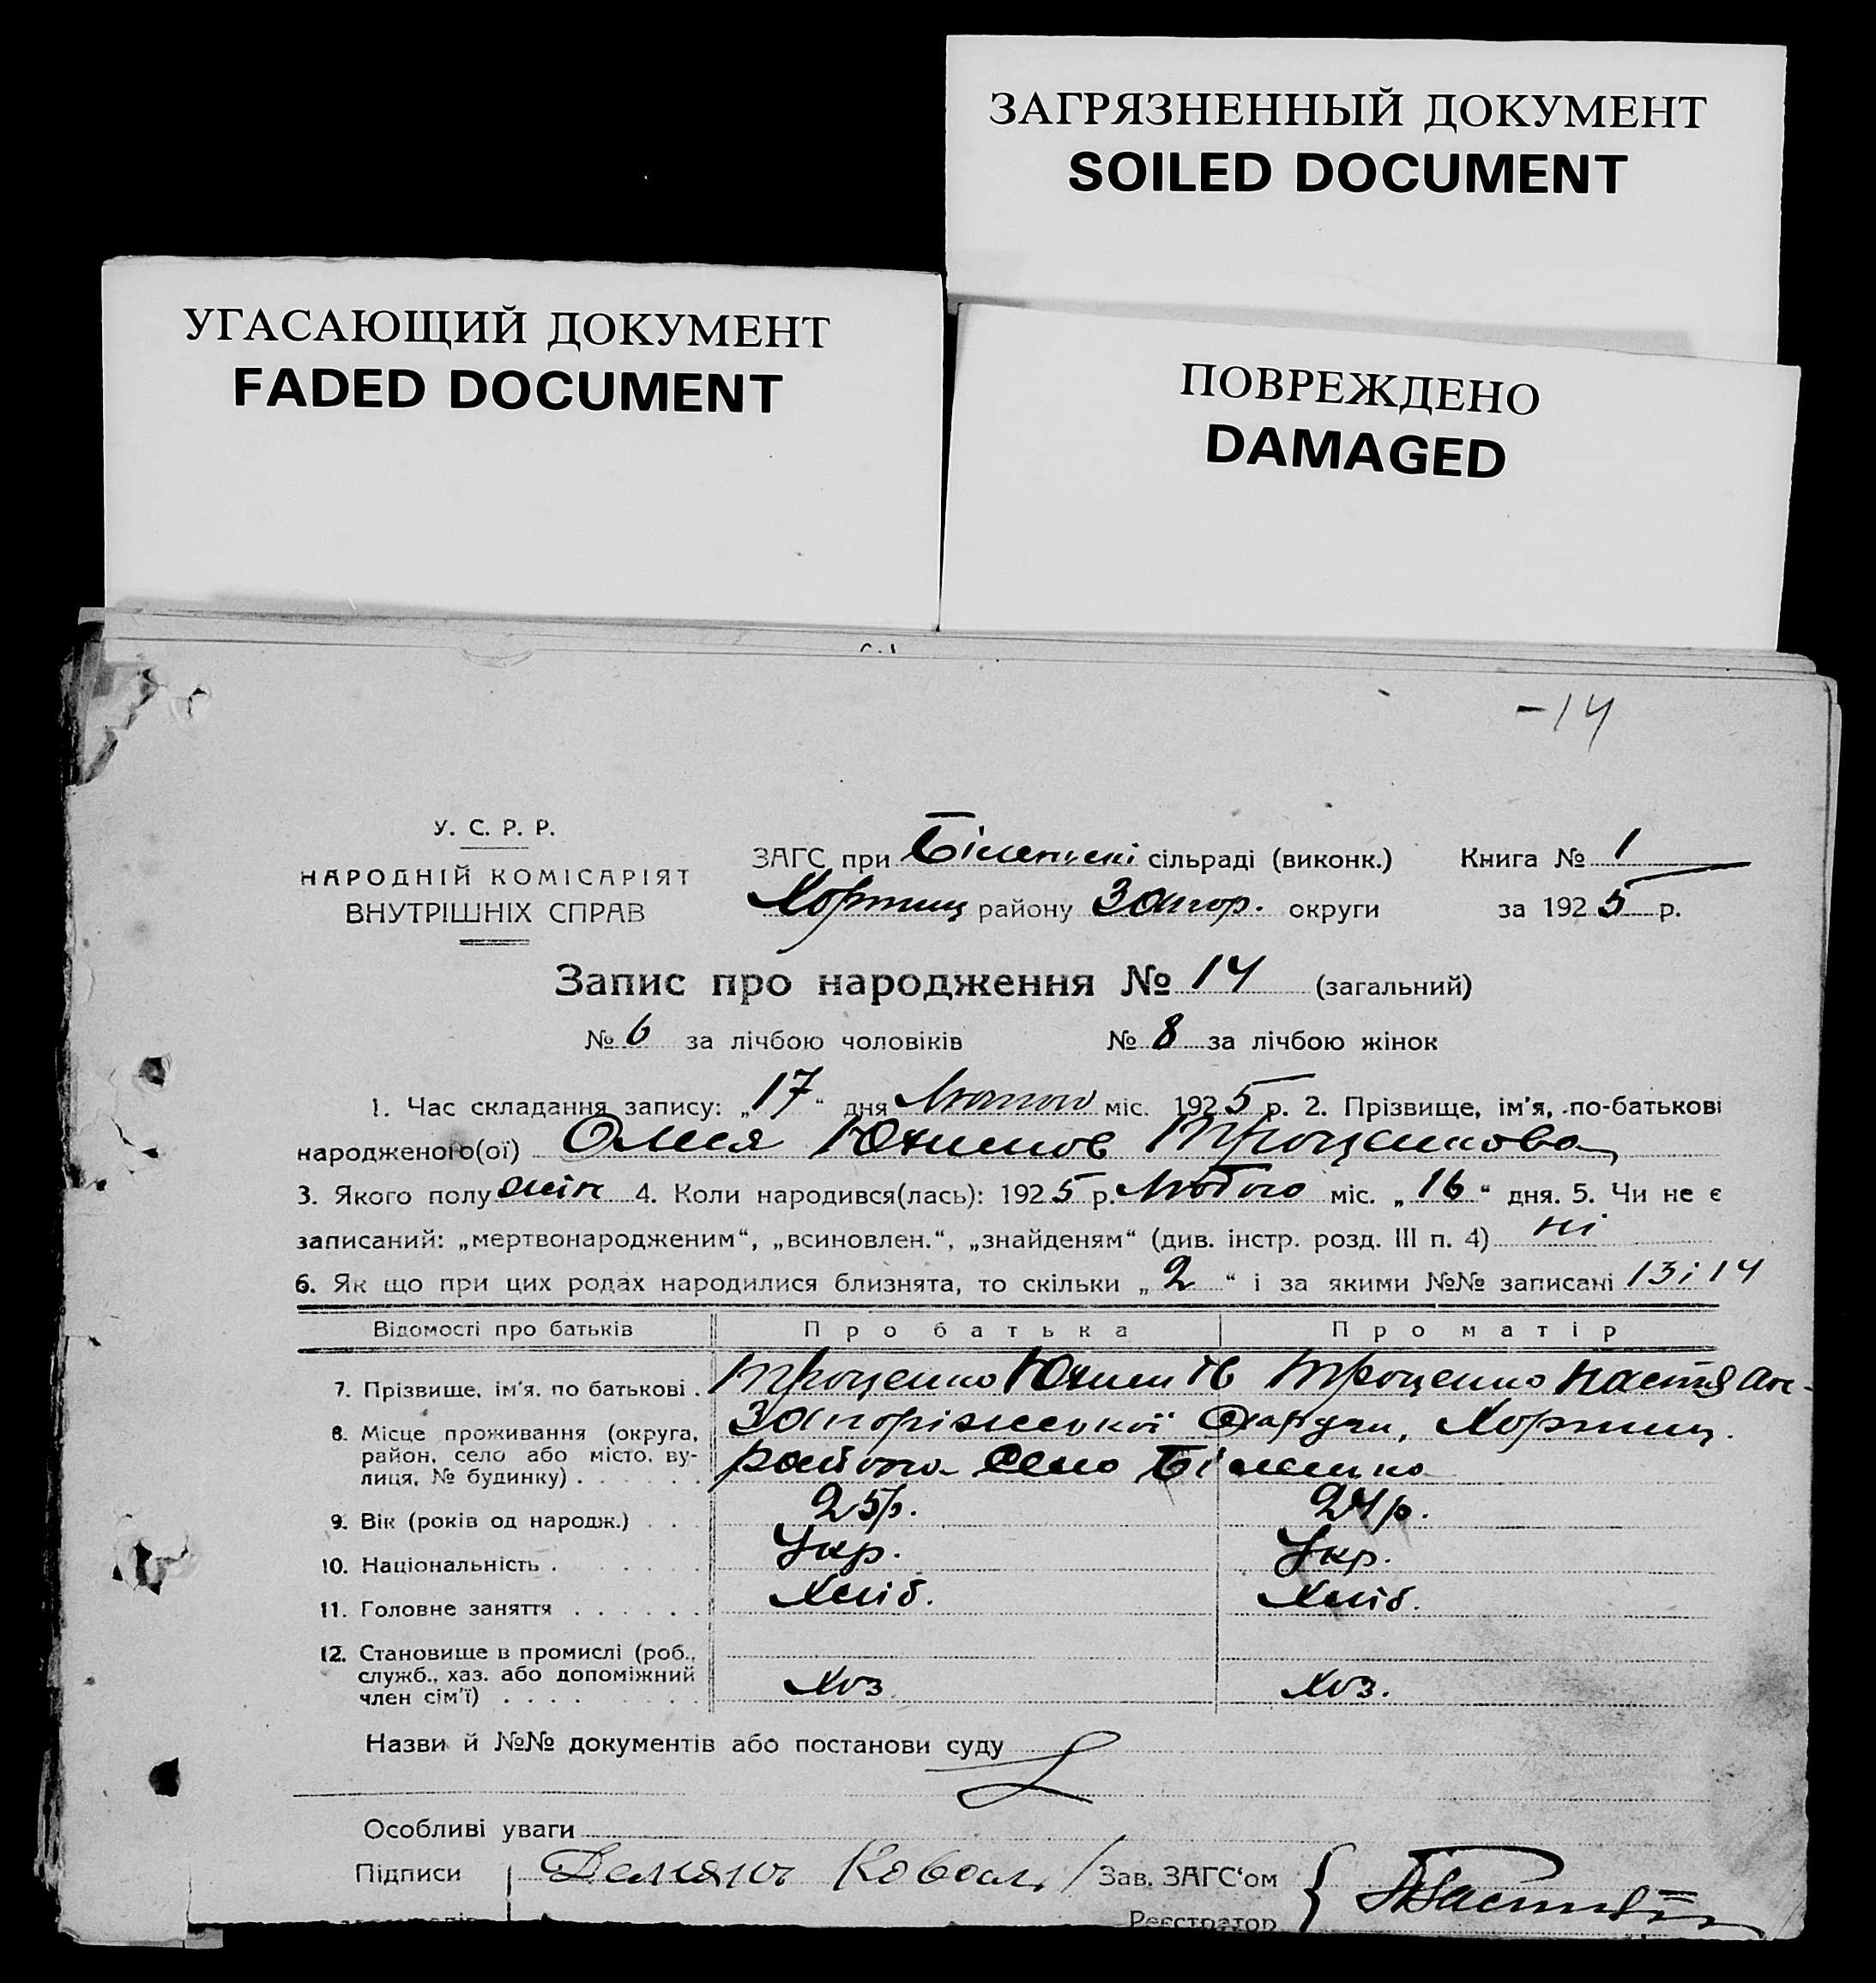 ЗАГРЯЗНЕННЫЙ ДОКУМЕНТ
SOILED DOCUMENT
УГАСАЮЩИЙ ДОКУМЕНТ
FADED DOCUMENT
ПОВРЕЖДЕНО
DAMAGED
-14
У. С. Р. Р.
НАРОДНІЙ КОМІСАРІЯТ
ВНУТРІШНІХ СПРАВ
ЗАГС при Біленькі сільраді (виконк.)
Хортиц району Запор. округи
Книга № 1
за 1925 р.
Запис про народження № 14 (загальний)
№ 6 за лічбою чоловіків № 8 за лічбою жінок
1. Час складання запису: „17“ дня Лютого міс. 1925 р. 2. Прізвище, ім'я, по-батькові
народженого(ої) Юхимов Троценкова
3. Якого полу жін 4. Коли народився(лась): 1925 р. Лютого міс. „16“ дня. 5. Чи не є
записаний: „мертвонародженим“, „всиновлен.“, „знайденям“ (див. інстр. розд. III п. 4) ні
6. Як що при цих родах народилися близнята, то скільки „2“ і за якими №№ записані 13 і 14
Відомості про батьків Про батька Про матір
7. Прізвище, ім'я, по батькові . Троценко Юхим Троценко Настя
8. Місце проживання (округа, район, село або місто, ву-
лиця, № будинку) . . . . . . Запоріжської Округи, Хортиц.
району село Біленьке
9. Вік (років од народж.) . . . 25р. 24р.
10. Національність . . . . . . Укр. Укр.
11. Головне заняття . . . . . . Хліб. Хліб.
12. Становище в промислі (роб.,
служб., хаз. або допоміжний
член сім'ї) . . . . . . Хоз. Хоз.
Назви й №№ документів або постанови суду
Особливі уваги
Підписи Коваль Зав. ЗАГС'ом
Реєстратор